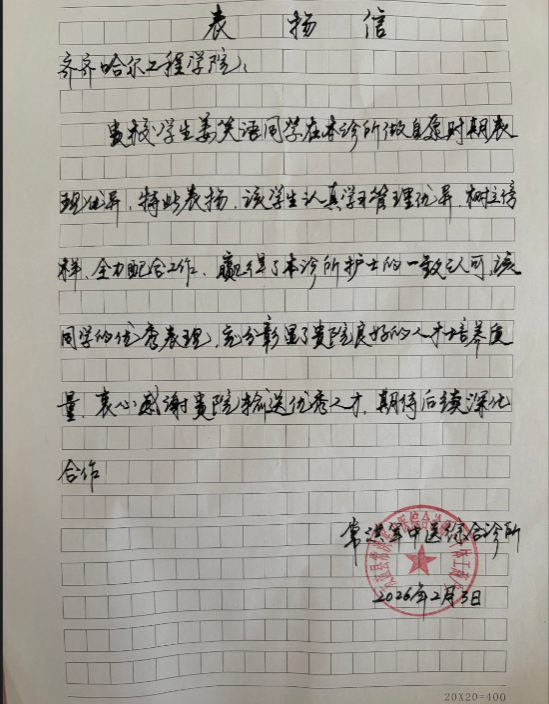 表扬信
齐齐哈尔工程学院:
贵校学生姜笑语同学在本诊所做自愿时期表
现优异,特此表扬.该学生认真学习管理优异,树立榜
样、全力配合工作、赢得了本诊所护士的一致认可,该
同学的优秀表理,充分彰显了贵院良好的人才培养质
量,衷心感谢贵院输送优秀人才,期待后续深化
合作
常洪军中医综合诊所
2026年2月3日
20X20=400